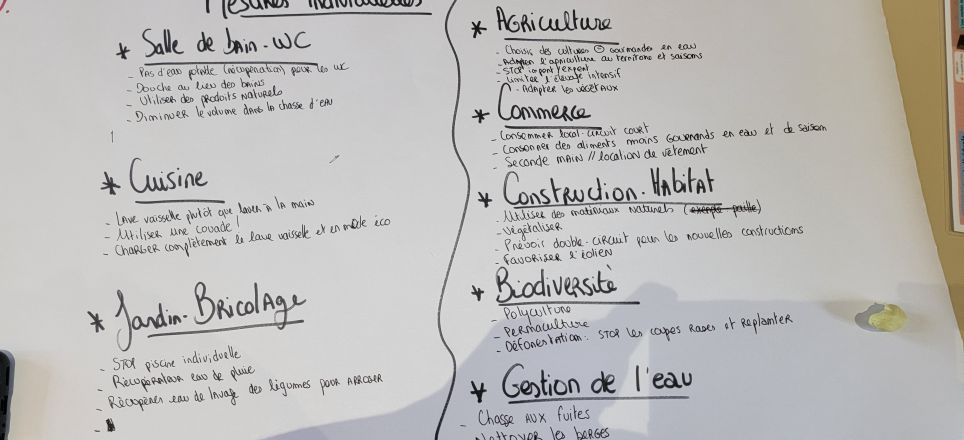 Mesures individuelles
* Salle de bain - WC
- Pas d'eau potable (récupération) pour les WC
- Douche au lieu des bains
- Utiliser des produits naturels
- Diminuer le volume dans la chasse d'eau
* Cuisine
- Lave vaisselle plutôt que laver à la main
- Utiliser une couade !
- Charger complètement le lave vaisselle et en mode éco
* Jardin - Bricolage
- STOP piscine individuelle
- Récupérateur eau de pluie
- Récupérer eau de lavage des légumes pour arroser
* Agriculture
- Choisir des cultures ⊖ gourmandes en eau
- Adapter l'agriculture au territoire et saisons
- STOP import/export
- Limiter l'élevage intensif
- Adapter les végétaux
* Commerce
- Consommer local - circuit court
- Consommer des aliments moins gourmands en eau et de saison
- Seconde main // location de vêtement
* Construction - Habitat
- Utiliser des matériaux naturels (exemple paille)
- Végétaliser
- Prévoir double-circuit pour les nouvelles constructions
- favoriser l'éolien
* Biodiversité
- Polyculture
- Permaculture
- Déforestation : STOP les coupes rases et replanter
* Gestion de l'eau
- Chasse aux fuites
- Nettoyer les berges